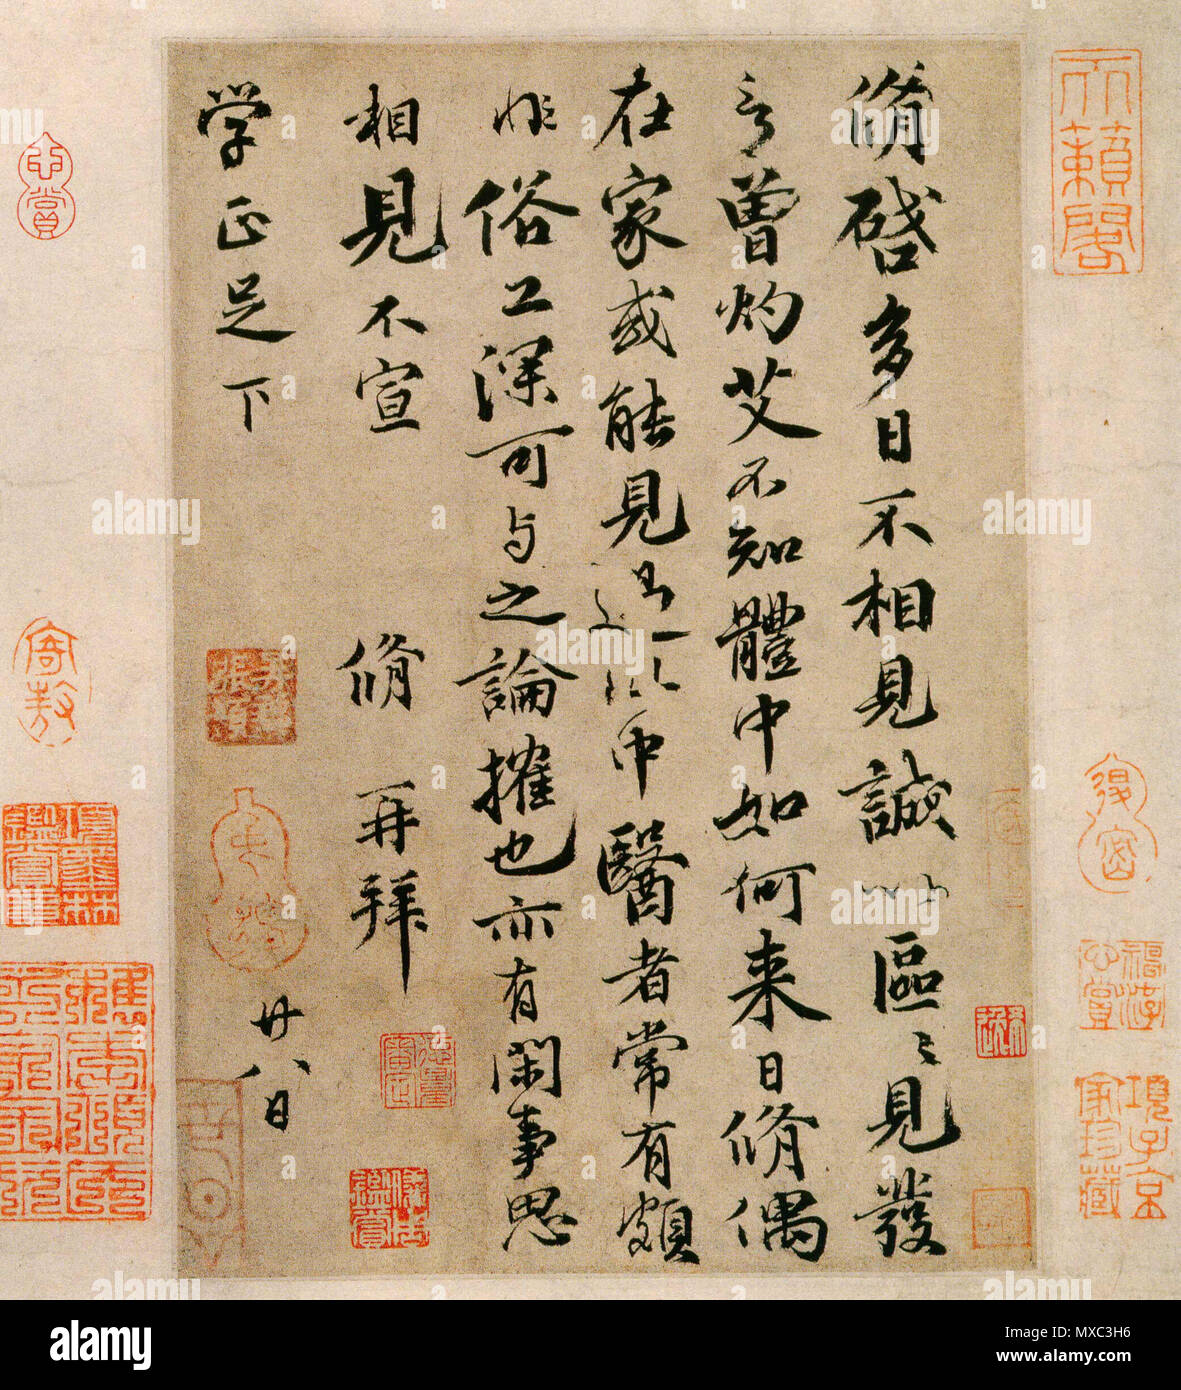 脩啓多日不相見誠以區〻見發
言曾灼艾不知體中如何來日脩偶
在家或能見過以中醫者常有頗
非俗工深可与之論搉也亦有閑事思
相見不宣　脩再拜
学正足下　廿八日
天籟閣
項子京家珍藏
alamy
Image ID: MXC3H6
www.alamy.com